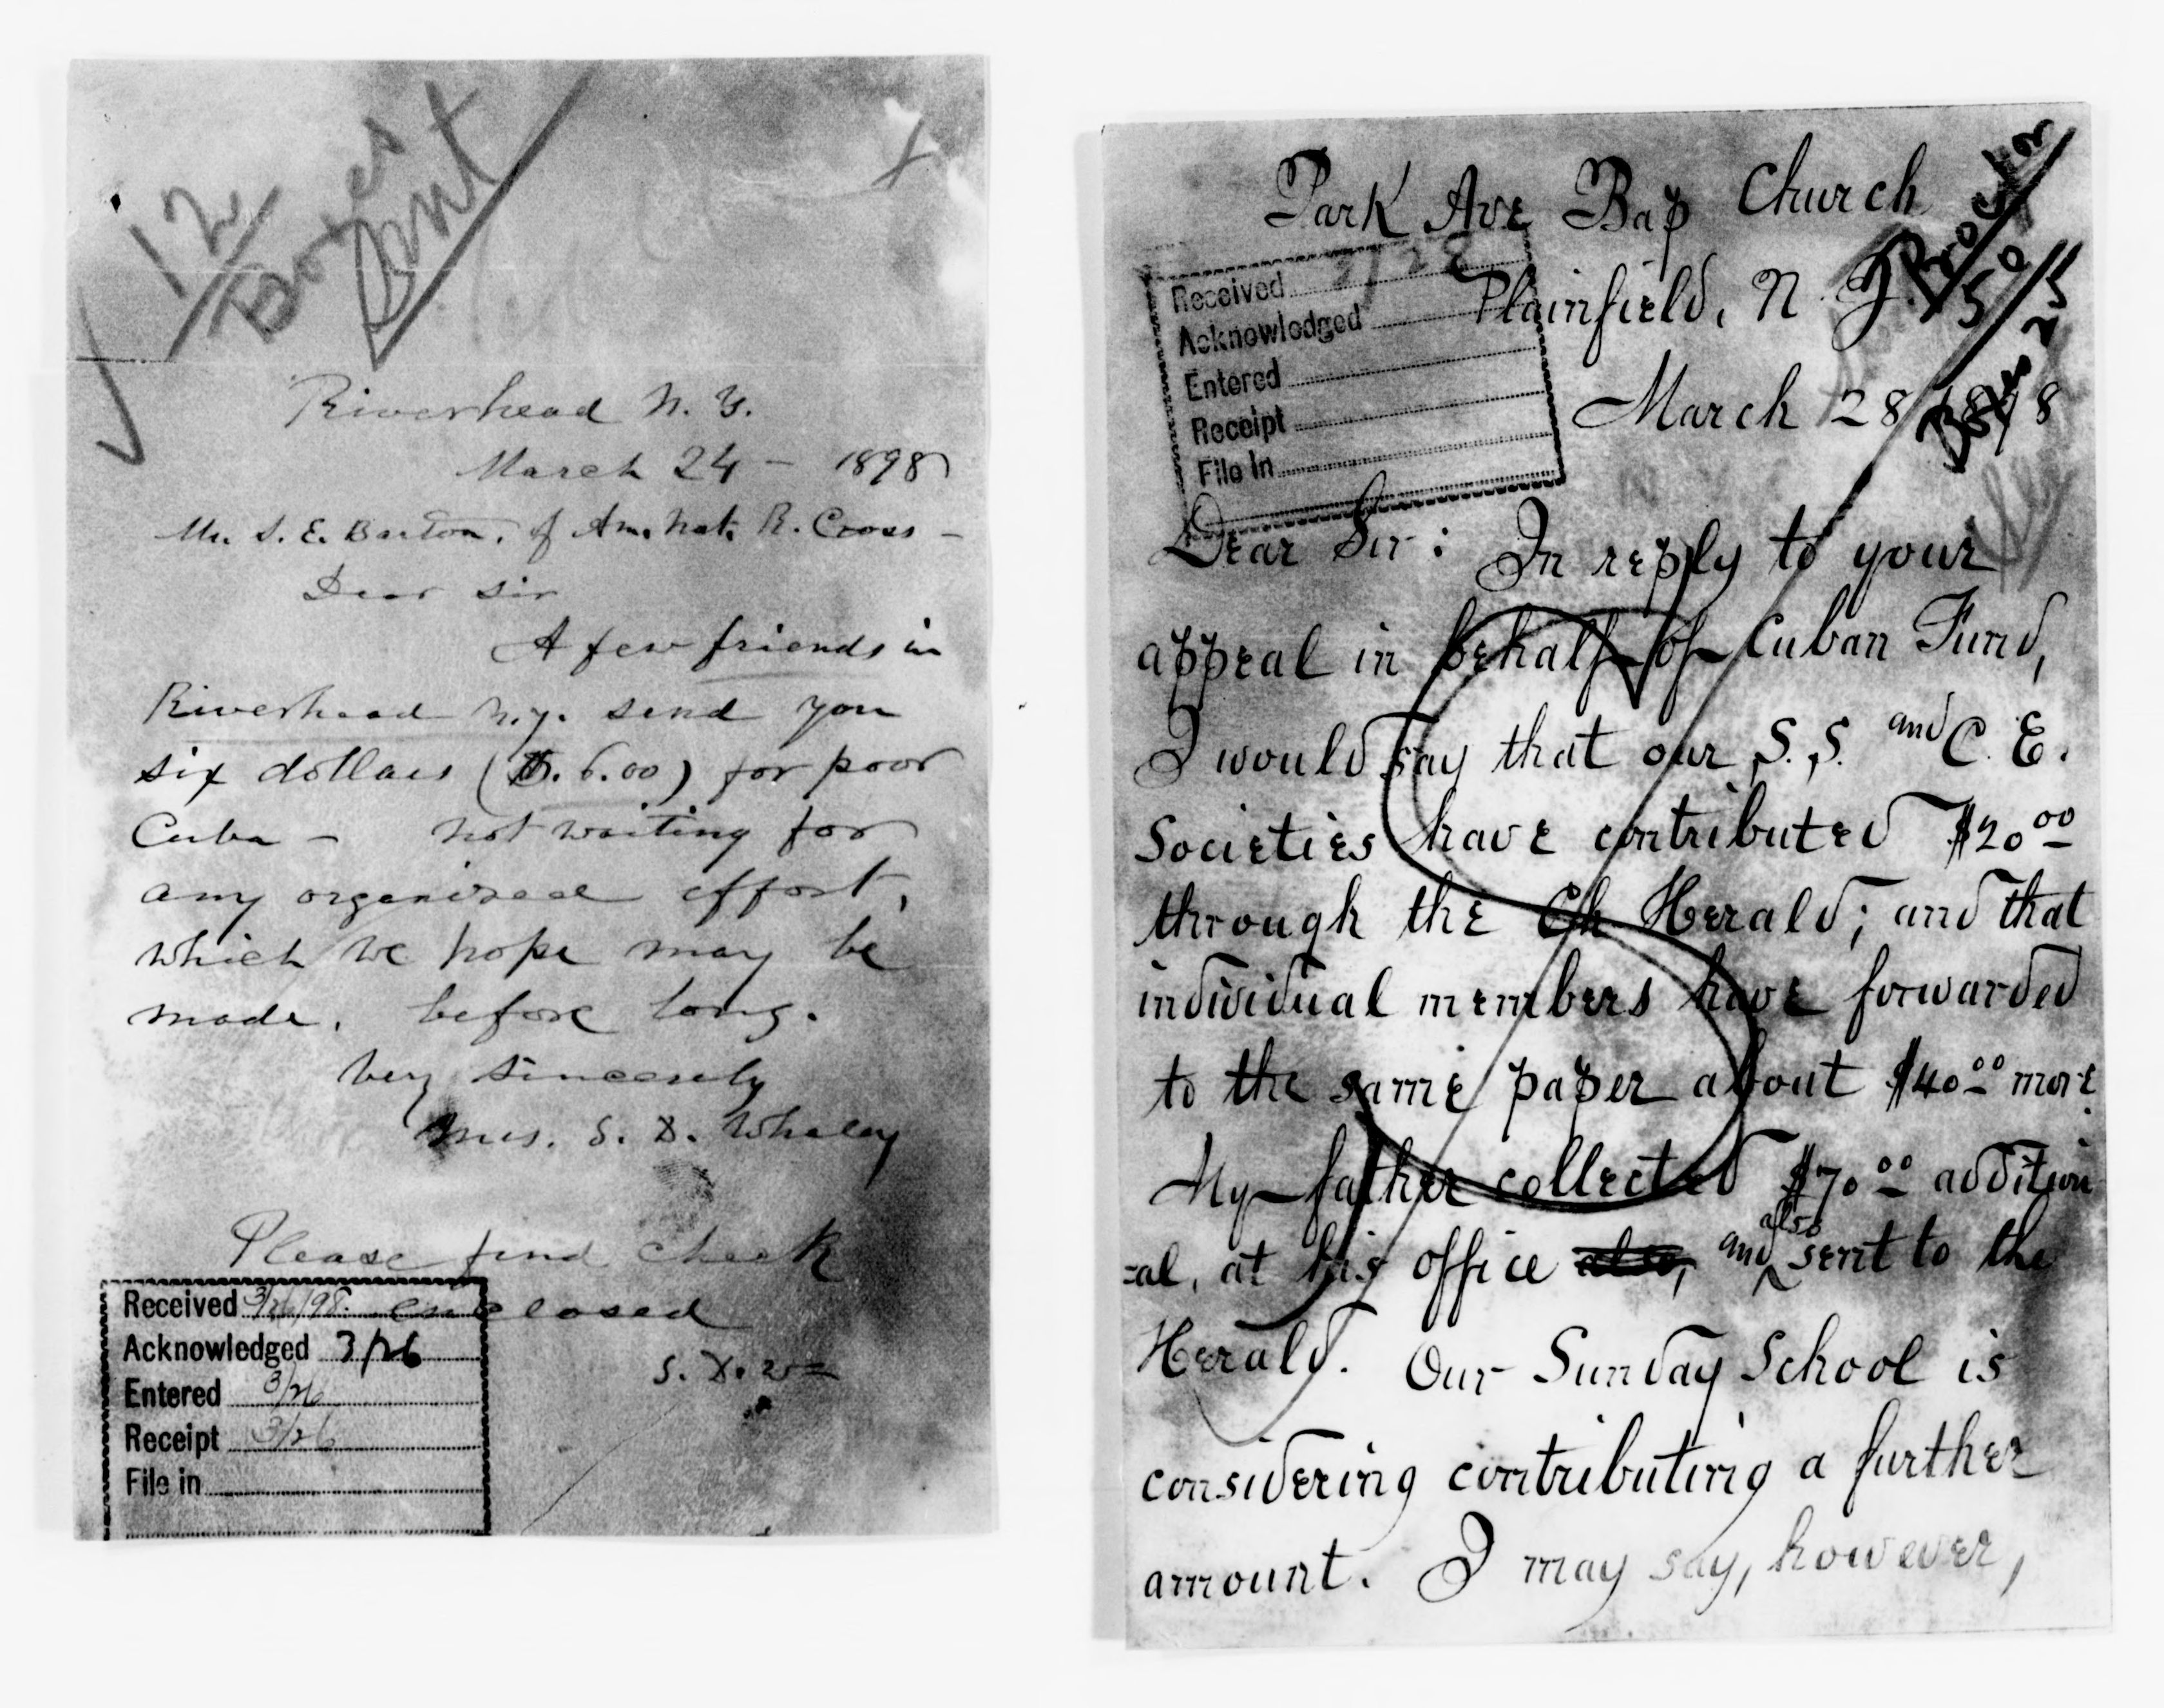 12
Boxes
Sent
Riverhead N. Y.
March 24 - 1898
Mr. S. E. Barton, of Am. Nat. R. Cross -
Dear Sir
A few friends in
Riverhead N.Y. send you
six dollars ($. 6.00) for poor
Cuba - not waiting for
any organized effort,
which we hope may be
made, before long.
Very Sincerely
Mrs. S. D. Whaley
Please find check
enclosed
S. D. W
Received 3/26/98.
Acknowledged 3/26
Entered 3/26
Receipt 3/26
File in
Park Ave Bap Church
Plainfield, N. J.
March 28 1898
50
25
Received 3/28
Acknowledged
Entered
Receipt
File In
Dear Sir: In reply to your
appeal in behalf of Cuban Fund,
I would say that our S. S. and C. E.
Societies have contributed $20 00
through the Ch Herald; and that
individual members have forwarded
to the same paper about $40 00 more.
My father collected $70 00 addition
=al, at his office also, and also sent to the
Herald. Our Sunday School is
considering contributing a further
amount. I may say, however,